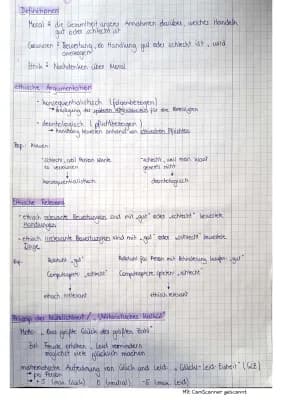 Definitionen
Moral: die Gesamtheit unserer Annahmen darüber, welches Handeln
gut oder schlecht ist
Gewissen: Bewertung, ob Handlung gut oder schlecht ist, wird
Ethik: Nachdenken über Moral
Ethische Argumentation
- konsequentialistisch (folgenbezogen)
- deontologisch (pflichtbezogen)
→ Handlung bewerten anhand von Pflichten
Bsp.: Klauen
"schlecht, weil Person Waren "schlecht, weil man
zu verlieren generell nicht
konsequentialistisch deontologisch
Ethische Relevanz
- ethisch relevante Bewertungen sind mit "gut" oder "schlecht" bewertete
Handlungen
- ethisch irrelevante Bewertungen sind mit "gut" oder "schlecht" bewertete
Dinge
Bsp. Rollstuhl "gut" Rollstuhl für Person mit Behinderung kaufen "gut"
Computerspiele "schlecht" Computerspiele spielen "schlecht"
ethisch irrelevant ethisch relevant
Prinzip der Nützlichkeit /
Motto: "Das größte Glück der größten Zahl"
Ziel: Freude erhöhen, Leid vermindern
möglichst viele glücklich machen
mathematische Aufrechnung von Glück und Leid: "Glücks-Leid-Einheit" (GLE)
→ pro Person
→ +5 (max. Glück) 0 (neutral) -5 (max. Leid)
Mit CamScanner gescannt